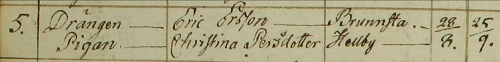 5. Drängen — Eric Ersson Brunnsta. — 28/8. 25/9.
Pigan — Christina Persdotter Hellby —